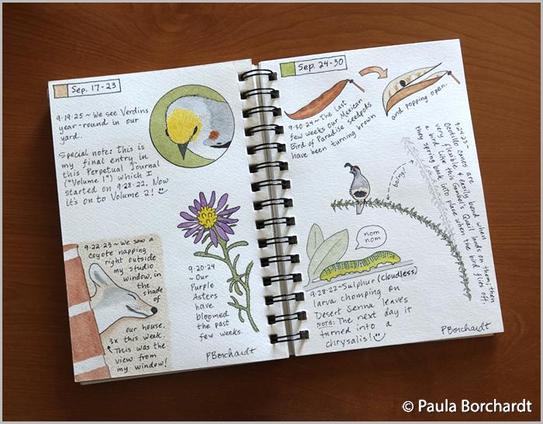 Sep. 17-23
9-19-25 ~ We see Verdins
year-round in our
yard.
Special note: This is
my final entry in
this Perpetual Journal
("Volume 1") which I
started on 9-23-22. Now
it's on to Volume 2!
9-22-23 ~ We saw a
coyote napping
right outside
my studio
window, in
the shade
of
our house,
3x this week.
This was the
view from
my window!
9-20-24
~ Our
Purple
Asters
have
bloomed
the past
few weeks.
PBorchardt
Sep. 24-30
9-30-24 ~ The last
few weeks our Mexican
Bird of Paradise seedpods
have been turning brown
and popping open.
Ocotillo canes are
very flexible & easily bend when
a bird like this Gambel's Quail lands on them, then
they spring back into place when the bird flies off.
boing!
nom
nom
9-28-22 ~ Sulphur (Cloudless)
larva chomping on
Desert Senna leaves
NOTE: The next day it
turned into a
chrysalis!
PBorchardt
© Paula Borchardt